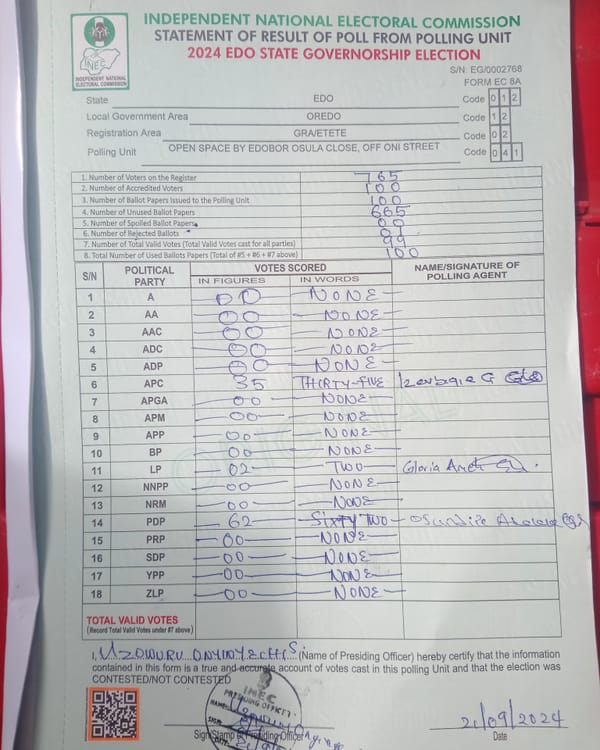 INDEPENDENT NATIONAL ELECTORAL COMMISSION
STATEMENT OF RESULT OF POLL FROM POLLING UNIT
2024 EDO STATE GOVERNORSHIP ELECTION
INEC
INDEPENDENT NATIONAL ELECTORAL COMMISSION
S/N: EG/0002768
FORM EC 8A
State EDO Code 0 1 2
Local Government Area OREDO Code 1 2
Registration Area GRA/ETETE Code 0 2
Polling Unit OPEN SPACE BY EDOBOR OSULA CLOSE, OFF ONI STREET Code 0 4 1
1. Number of Voters on the Register 765
2. Number of Accredited Voters 100
3. Number of Ballot Papers Issued to the Polling Unit
4. Number of Unused Ballot Papers 665
5. Number of Spoiled Ballot Papers
6. Number of Rejected Ballots
7. Number of Total Valid Votes (Total Valid Votes cast for all parties) 99
8. Total Number of Used Ballots Papers (Total of #5 + #6 + #7 above) 100
S/N POLITICAL PARTY VOTES SCORED NAME/SIGNATURE OF POLLING AGENT
IN FIGURES IN WORDS
1 A 00 NONE
2 AA 00 NONE
3 AAC 00 NONE
4 ADC 00 NONE
5 ADP 00 NONE
6 APC 35 THIRTY-FIVE
7 APGA 00 NONE
8 APM 00 NONE
9 APP 00 NONE
10 BP 00 NONE
11 LP 02 TWO Gloria
12 NNPP 00 NONE
13 NRM 00 NONE
14 PDP 62 SIXTY TWO
15 PRP 00 NONE
16 SDP 00 NONE
17 YPP 00 NONE
18 ZLP 00 NONE
TOTAL VALID VOTES
(Record Total Valid Votes under #7 above)
I, UZOWURU ONYINYECHI S (Name of Presiding Officer) hereby certify that the information
contained in this form is a true and accurate account of votes cast in this polling Unit and that the election was
CONTESTED/NOT CONTESTED
INEC
PRESIDING OFFICER
NAME:
SIGN
21/09/2024
Sign/Stamp of Presiding Officer Date